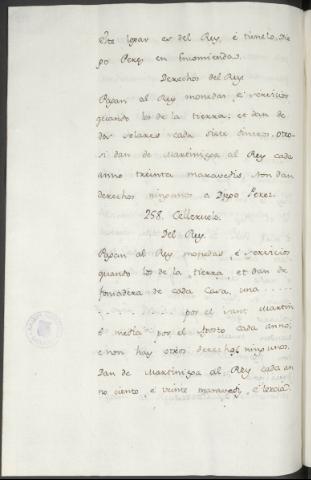 Este logar es del Rey, é tienelo Die
go Perez en Encomienda.
Derechos del Rey
Pagan al Rey monedas, é servicios
quando los de la tierra; et dan de
dos solares cada siete dineros, otro
si dan de Martiniega al Rey cada
anno treinta maravedis, non dan
derechos ningunos a Diego Perez.
258. Celleruelo.
Del Rey.
Pagan al Rey monedas, é servicios
quando los de la tierra, et dan de
fonsadera de cada casa, una ....
........ por el sant Martin
é media por el Agosto cada anno;
e non hay otros derechos ningunos.
Dan de Martiniega al Rey cada an
no ciento, é veinte maravedis, é tercia